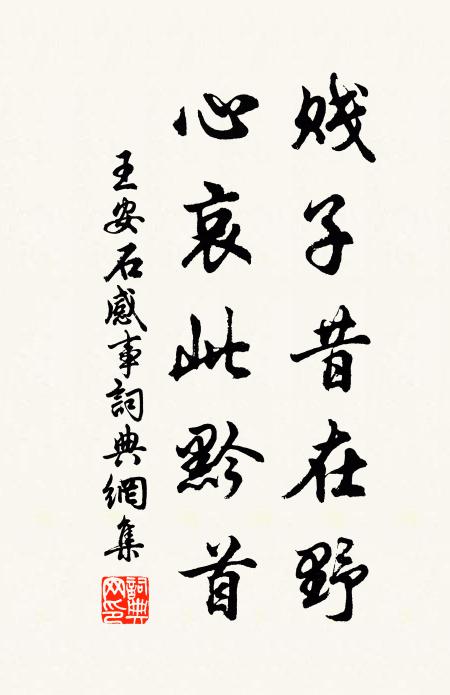 賤子昔在野
心哀此黔首
王安石感事詞典網集
詞典
网印